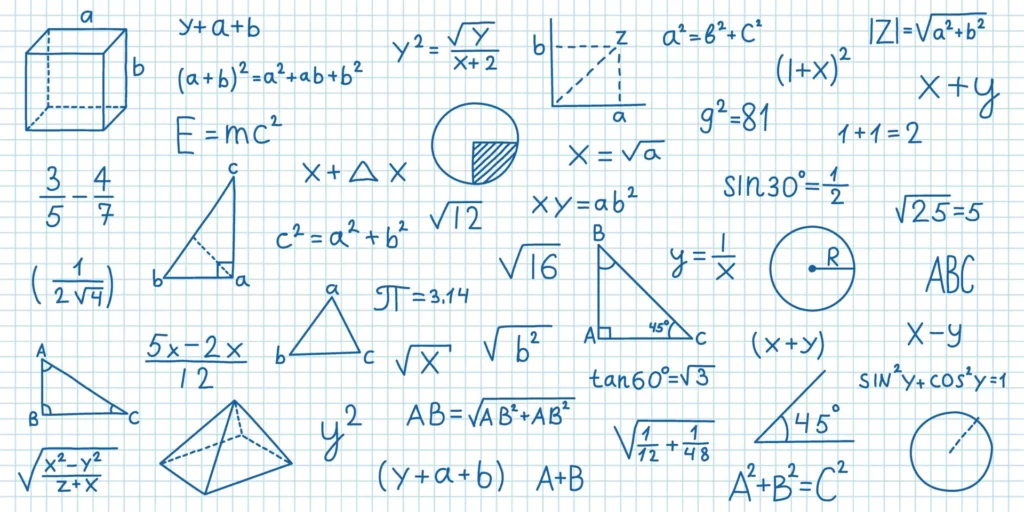 a
b
y+a+b
(a+b)²=a²+ab+b²
E=mc²
y²=√y/(x+2)
b
z
a
a²=b²+c²
(1+x)²
|Z|=√a²+b²
x+y
g²=81
1+1=2
x=√a
3/5-4/7
c
b
a
x+△x
c²=a²+b²
√12
xy=ab²
sin30°=1/2
√25=5
(1/2√4)
π=3.14
√16
B
A
45°
C
y=1/x
R
ABC
5x-2x/12
a
b
c
√x
√b²
(x+y)
x-y
A
B
C
tan60°=√3
sin²y+cos²y=1
√x²-y²/z+x
y²
AB=√AB²+AB²
(y+a+b)
A+B
√1/12+1/48
45°
A²+B²=C²